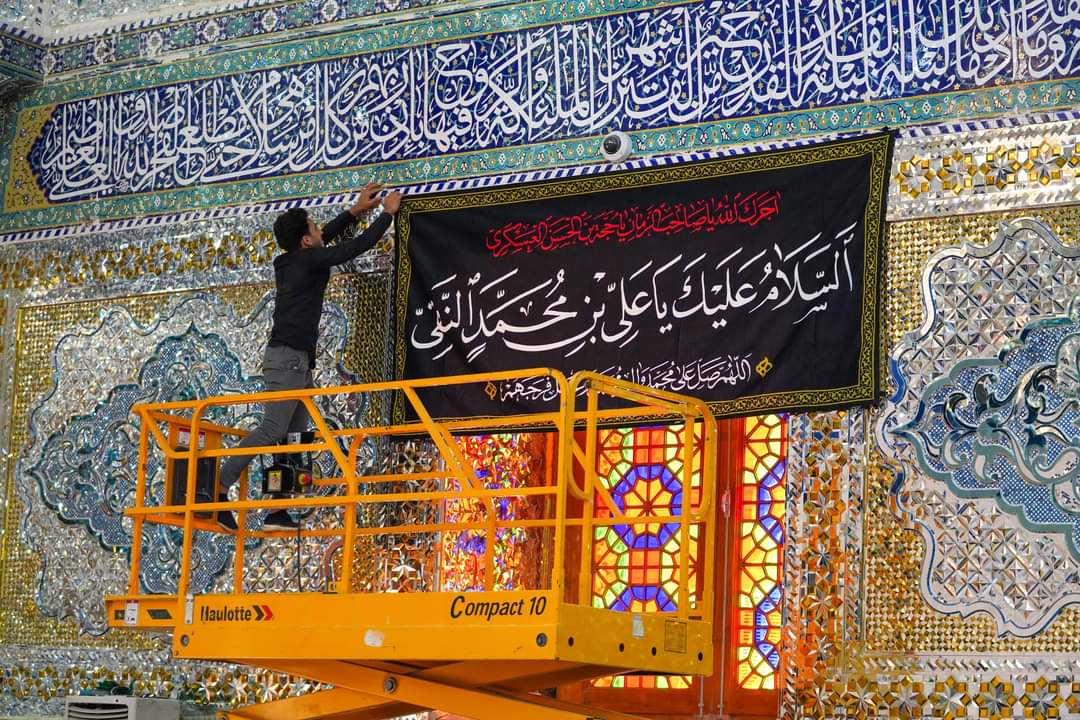 وما ادراك ما ليلة القدر ليلة القدر خير من الف شهر تنزل الملئكة والروح فيها باذن ربهم من كل امر سلام هي حتى مطلع الفجر صدق الله العلي العظيم
اجرك الله يا صاحب الزمان يا حجة بن الحسن العسكري
ٱلسَّلَامُ عَلَيْكَ يَا عَلِيّ بْنَ مُحَمَّدٍ ٱلنَّقِيّ
اللهم صل على محمد وال فرجهم
Haulotte
Compact 10